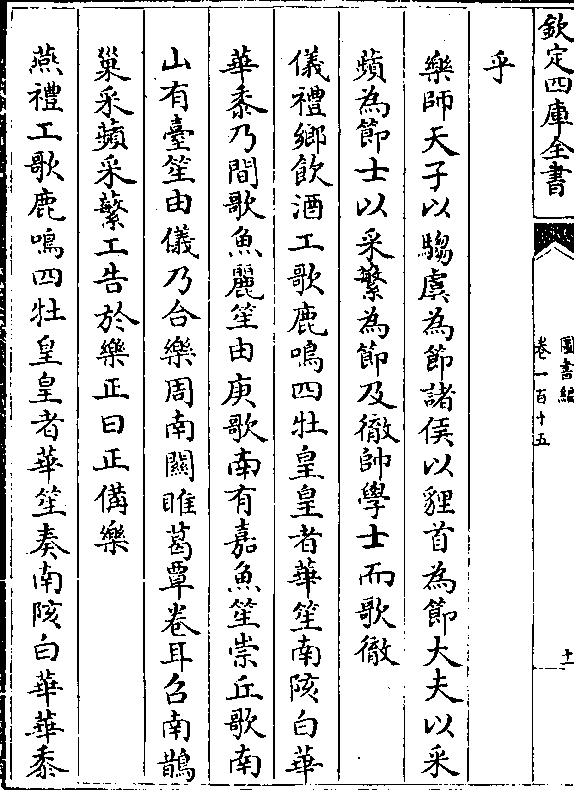 欽定四庫全書
圖書編
卷一百十五
十一
乎
樂師天子以騶虞為節諸侯以貍首為節大夫以采
蘋為節士以采蘩為節及徹帥學士而歌徹
儀禮鄉飲酒工歌鹿鳴四牡皇皇者華笙南陔白華
華黍乃間歌魚麗笙由庚歌南有嘉魚笙崇丘歌南
山有臺笙由儀乃合樂周南關雎葛覃卷耳召南鵲
巢采蘋采蘩工告於樂正曰正備樂
燕禮工歌鹿鳴四牡皇皇者華笙奏南陔白華華黍